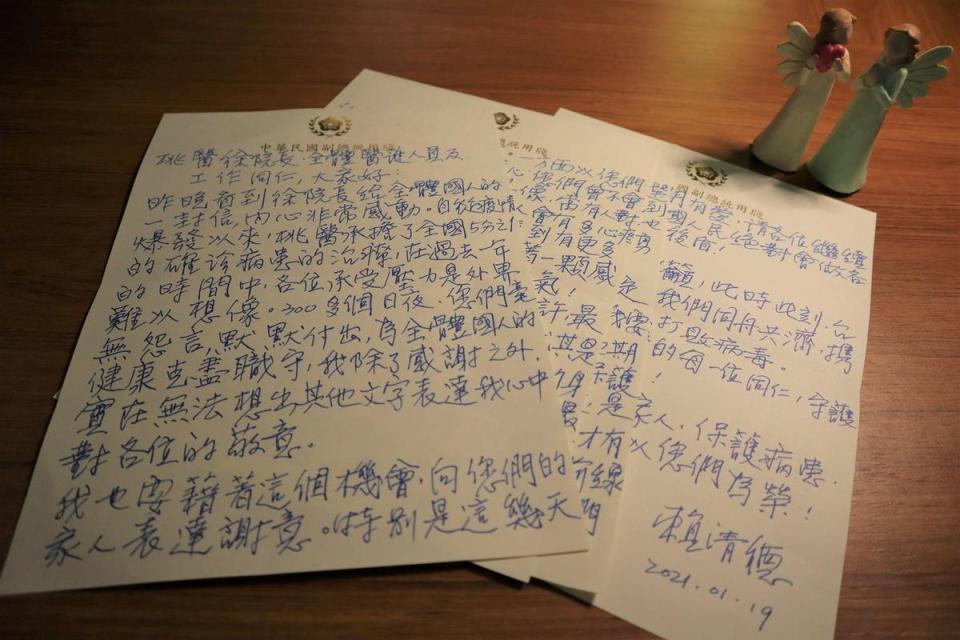 中華民國副總統用牋
桃醫徐院長、全體醫護人員及
工作同仁,大家好:
昨晚看到徐院長給全體國人的
一封信,內心非常感動。自從疫情
爆發以來,桃醫承擔了全國5分之1
的確診病患的治療,在過去一年
的時間中,各位承受壓力是外界
難以想像。300多個日後,您們毫
無怨言,默默付出,為全體國人的
健康克盡職守,我除了感謝之外,
實在無法想出其他文字表達我心中
對各位的敬意。
我也要藉著這個機會,向您們的
家人表達謝意。特別是這幾天
總統用牋
國副總統用牋
請各位繼續
國人民絕對會做各
後盾!
籲,此時此刻,
我們同舟共濟,攜
打敗病毒。
的每一位同仁,守護
是家人,保護病患,
才有
以您們為榮!
賴清德
2021.01.19